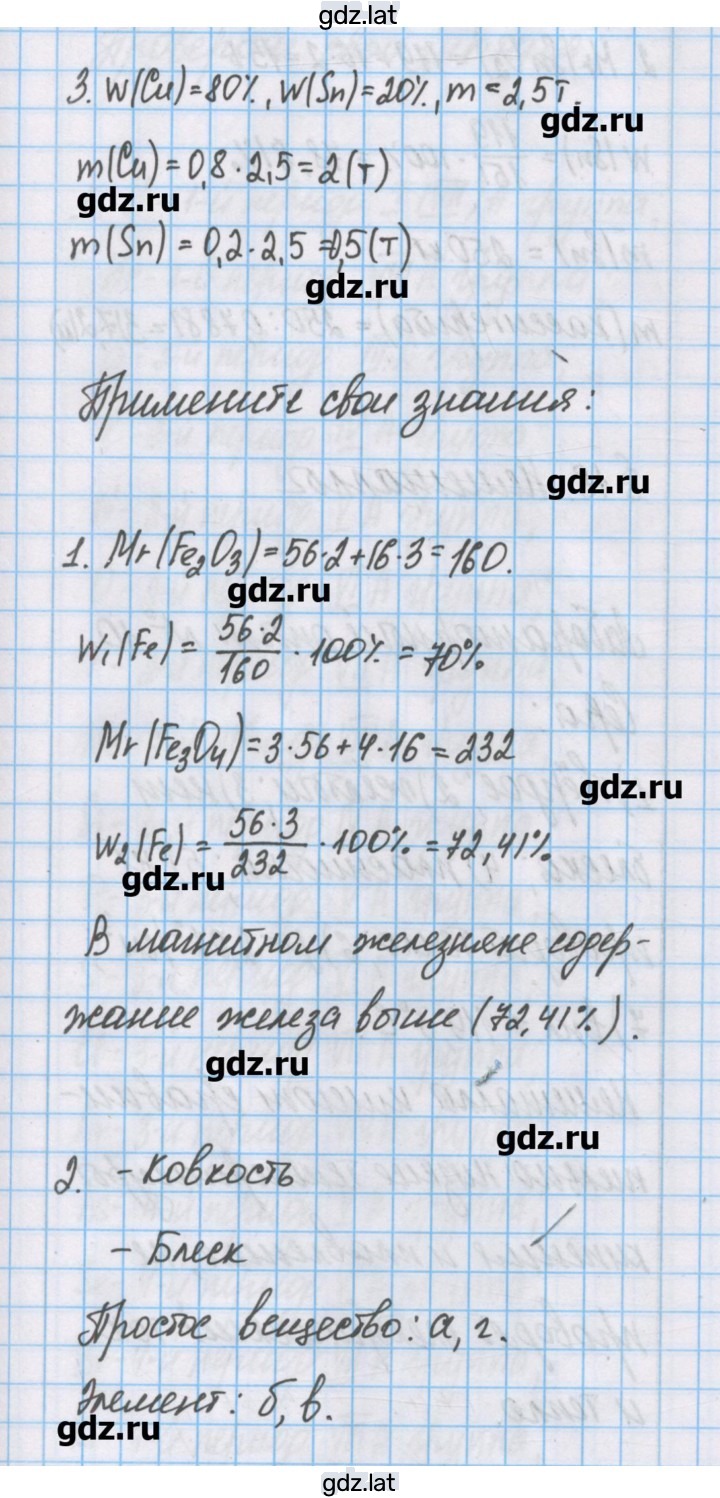 gdz.lat
3. W(Cu)=80%, W(Sn)=20%, m=2,5т.
gdz.ru
m(Cu)=0,8·2,5=2(т)
gdz.ru
m(Sn)=0,2·2,5=0,5(т)
gdz.ru
Примените свои знания:
gdz.ru
1. Mr(Fe₂O₃)=56·2+16·3=160.
gdz.ru
W₁(Fe)= 56·2/160 ·100%=70%
Mr(Fe₃O₄)=3·56+4·16=232
gdz.ru
W₂(Fe)= 56·3/232 ·100%=72,41%
gdz.ru
В магнитном железняке содер-
жание железа выше (72,41%).
gdz.ru
gdz.ru
2. - Ковкость
- Блеск
Простое вещество: а, г.
Элемент: б, в.
gdz.ru
gdz.lat